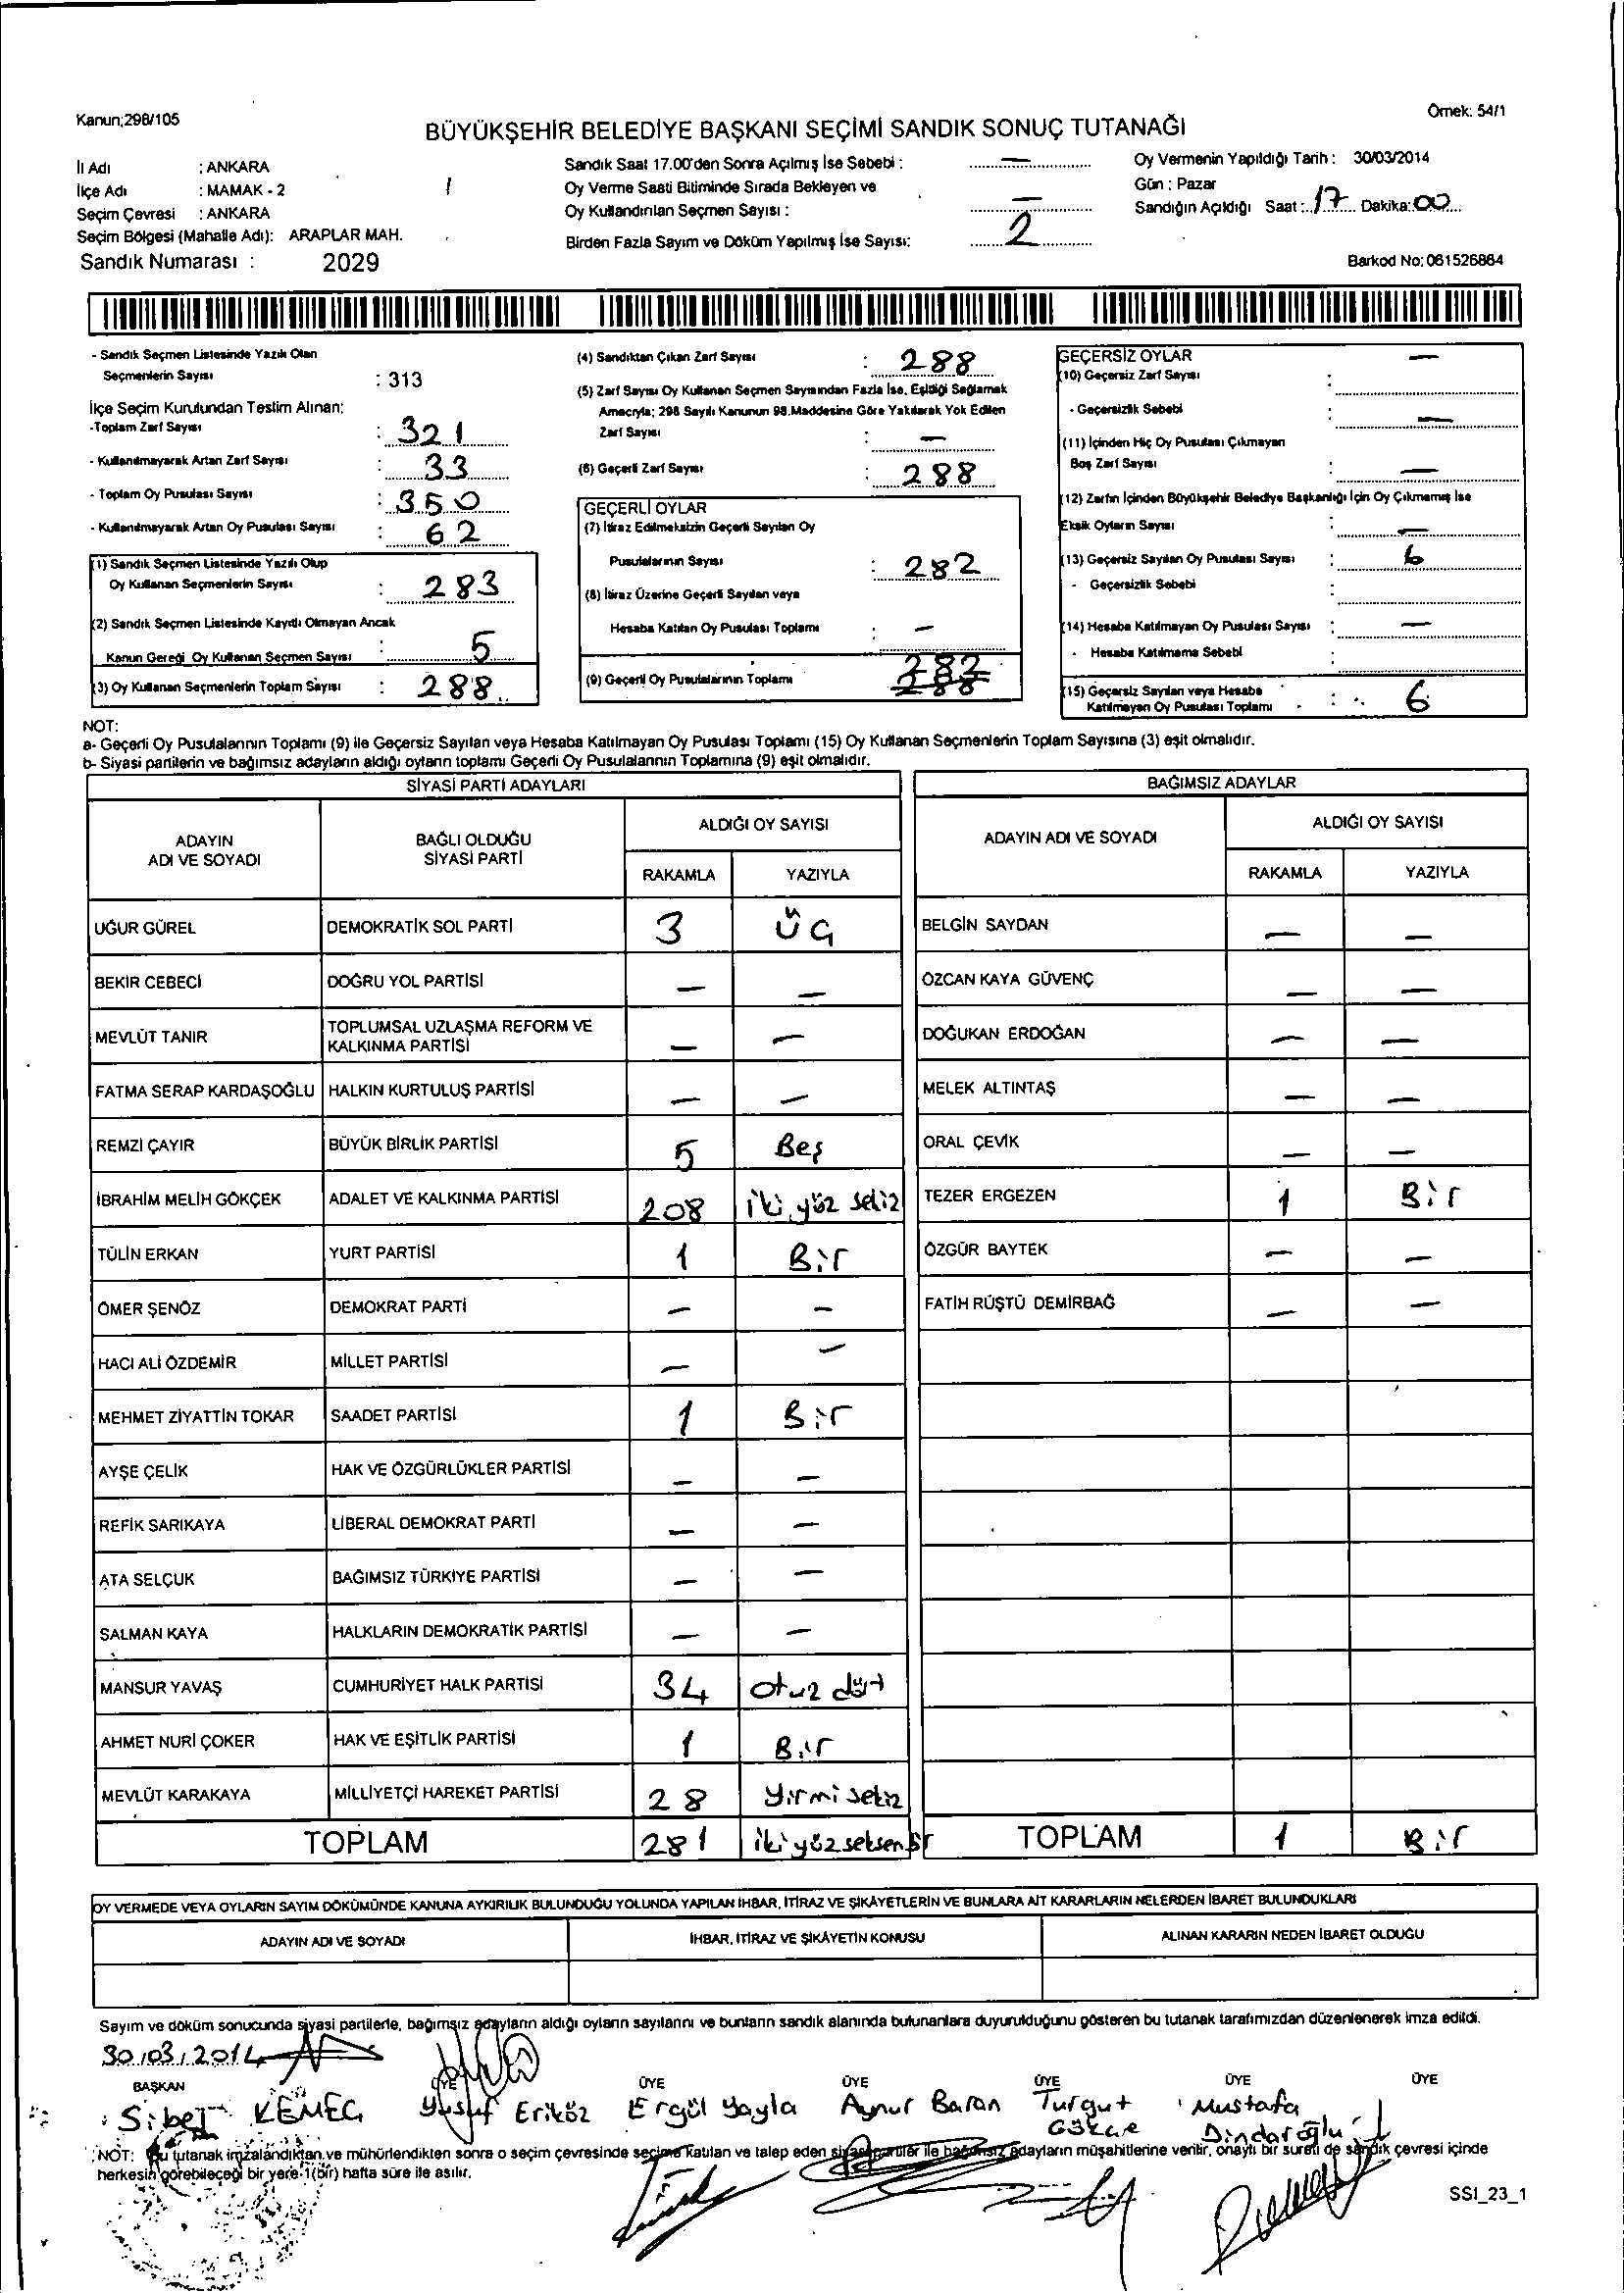 Kanun;298/105
Örnek: 54/1
BÜYÜKŞEHİR BELEDİYE BAŞKANI SEÇİMİ SANDIK SONUÇ TUTANAĞI
İl Adı : ANKARA
İlçe Adı : MAMAK - 2
Seçim Çevresi : ANKARA
Seçim Bölgesi (Mahalle Adı): ARAPLAR MAH.
Sandık Numarası : 2029
Sandık Saat 17.00'den Sonra Açılmış İse Sebebi : —
Oy Verme Saati Bitiminde Sırada Bekleyen ve
Oy Kullandırılan Seçmen Sayısı : —
Birden Fazla Sayım ve Döküm Yapılmış İse Sayısı: 2
Oy Vermenin Yapıldığı Tarih : 30/03/2014
Gün : Pazar
Sandığın Açıldığı Saat : 17 Dakika: 00
Barkod No: 061526864
- Sandık Seçmen Listesinde Yazılı Olan
Seçmenlerin Sayısı : 313
İlçe Seçim Kurulundan Teslim Alınan:
-Toplam Zarf Sayısı : 321
- Kullanılmayarak Artan Zarf Sayısı : 33
- Toplam Oy Pusulası Sayısı : 350
- Kullanılmayarak Artan Oy Pusulası Sayısı : 62
(1) Sandık Seçmen Listesinde Yazılı Olup
Oy Kullanan Seçmenlerin Sayısı : 283
(2) Sandık Seçmen Listesinde Kayıtlı Olmayan Ancak
Kanun Gereği Oy Kullanan Seçmen Sayısı : 5
(3) Oy Kullanan Seçmenlerin Toplam Sayısı : 288
(4) Sandıktan Çıkan Zarf Sayısı : 288
(5) Zarf Sayısı Oy Kullanan Seçmen Sayısından Fazla İse, Eşitliği Sağlamak
Amacıyla; 298 Sayılı Kanunun 98.Maddesine Göre Yakılarak Yok Edilen
Zarf Sayısı : —
(6) Geçerli Zarf Sayısı : 288
GEÇERLİ OYLAR
(7) İtiraz Edilmeksizin Geçerli Sayılan Oy
Pusulalarının Sayısı : 282
(8) İtiraz Üzerine Geçerli Sayılan veya
Hesaba Katılan Oy Pusulası Toplamı : —
(9) Geçerli Oy Pusulalarının Toplamı 282 288
GEÇERSİZ OYLAR —
(10) Geçersiz Zarf Sayısı :
- Geçersizlik Sebebi : —
(11) İçinden Hiç Oy Pusulası Çıkmayan
Boş Zarf Sayısı : —
(12) Zarfın İçinden Büyükşehir Belediye Başkanlığı İçin Oy Çıkmamış İse
Eksik Oyların Sayısı : —
(13) Geçersiz Sayılan Oy Pusulası Sayısı : 6
- Geçersizlik Sebebi :
(14) Hesaba Katılmayan Oy Pusulası Sayısı : —
- Hesaba Katılmama Sebebi :
(15) Geçersiz Sayılan veya Hesaba
Katılmayan Oy Pusulası Toplamı : 6
NOT:
a- Geçerli Oy Pusulalarının Toplamı (9) ile Geçersiz Sayılan veya Hesaba Katılmayan Oy Pusulası Toplamı (15) Oy Kullanan Seçmenlerin Toplam Sayısına (3) eşit olmalıdır.
b- Siyasi partilerin ve bağımsız adayların aldığı oyların toplamı Geçerli Oy Pusulalarının Toplamına (9) eşit olmalıdır.
SİYASİ PARTİ ADAYLARI
ADAYIN ADI VE SOYADI BAĞLI OLDUĞU SİYASİ PARTİ ALDIĞI OY SAYISI
RAKAMLA YAZIYLA
UĞUR GÜREL DEMOKRATİK SOL PARTİ 3 ÜÇ
BEKİR CEBECİ DOĞRU YOL PARTİSİ — —
MEVLÜT TANIR TOPLUMSAL UZLAŞMA REFORM VE KALKINMA PARTİSİ — —
FATMA SERAP KARDAŞOĞLU HALKIN KURTULUŞ PARTİSİ — —
REMZİ ÇAYIR BÜYÜK BİRLİK PARTİSİ 5 Beş
İBRAHİM MELİH GÖKÇEK ADALET VE KALKINMA PARTİSİ 208 iki yüz sekiz
TÜLİN ERKAN YURT PARTİSİ 1 Bir
ÖMER ŞENÖZ DEMOKRAT PARTİ — —
HACI ALİ ÖZDEMİR MİLLET PARTİSİ — —
MEHMET ZİYATTİN TOKAR SAADET PARTİSİ 1 Bir
AYŞE ÇELİK HAK VE ÖZGÜRLÜKLER PARTİSİ — —
REFİK SARIKAYA LİBERAL DEMOKRAT PARTİ — —
ATA SELÇUK BAĞIMSIZ TÜRKİYE PARTİSİ — —
SALMAN KAYA HALKLARIN DEMOKRATİK PARTİSİ — —
MANSUR YAVAŞ CUMHURİYET HALK PARTİSİ 34 otuz dört
AHMET NURİ ÇOKER HAK VE EŞİTLİK PARTİSİ 1 Bir
MEVLÜT KARAKAYA MİLLİYETÇİ HAREKET PARTİSİ 28 Yirmi sekiz
TOPLAM 281 iki yüz seksen bir
BAĞIMSIZ ADAYLAR
ADAYIN ADI VE SOYADI ALDIĞI OY SAYISI
RAKAMLA YAZIYLA
BELGİN SAYDAN — —
ÖZCAN KAYA GÜVENÇ — —
DOĞUKAN ERDOĞAN — —
MELEK ALTINTAŞ — —
ORAL ÇEVİK — —
TEZER ERGEZEN 1 Bir
ÖZGÜR BAYTEK — —
FATİH RÜŞTÜ DEMİRBAĞ — —
TOPLAM 1 Bir
OY VERMEDE VEYA OYLARIN SAYIM DÖKÜMÜNDE KANUNA AYKIRILIK BULUNDUĞU YOLUNDA YAPILAN İHBAR, İTİRAZ VE ŞİKÂYETLERİN VE BUNLARA AİT KARARLARIN NELERDEN İBARET BULUNDUKLARI
ADAYIN ADI VE SOYADI İHBAR, İTİRAZ VE ŞİKÂYETİN KONUSU ALINAN KARARIN NEDEN İBARET OLDUĞU
Sayım ve döküm sonucunda siyasi partilerle, bağımsız adayların aldığı oyların sayılarını ve bunların sandık alanında bulunanlara duyurulduğunu gösteren bu tutanak tarafımızdan düzenlenerek imza edildi.
30/03/2014
BAŞKAN ÜYE ÜYE ÜYE ÜYE ÜYE ÜYE
Sibel KEMEÇ Yusuf Eriköz Ergül Yayla Aynur Baran Turgut Gökçe Mustafa Dindaroğlu
NOT: Bu tutanak imzalandıktan ve mühürlendikten sonra o seçim çevresinde seçime katılan ve talep eden siyasi partiler ile bağımsız adayların müşahitlerine verilir, onaylı bir sureti de sandık çevresi içinde
herkesin görebileceği bir yere 1(bir) hafta süre ile asılır.
SSI_23_1